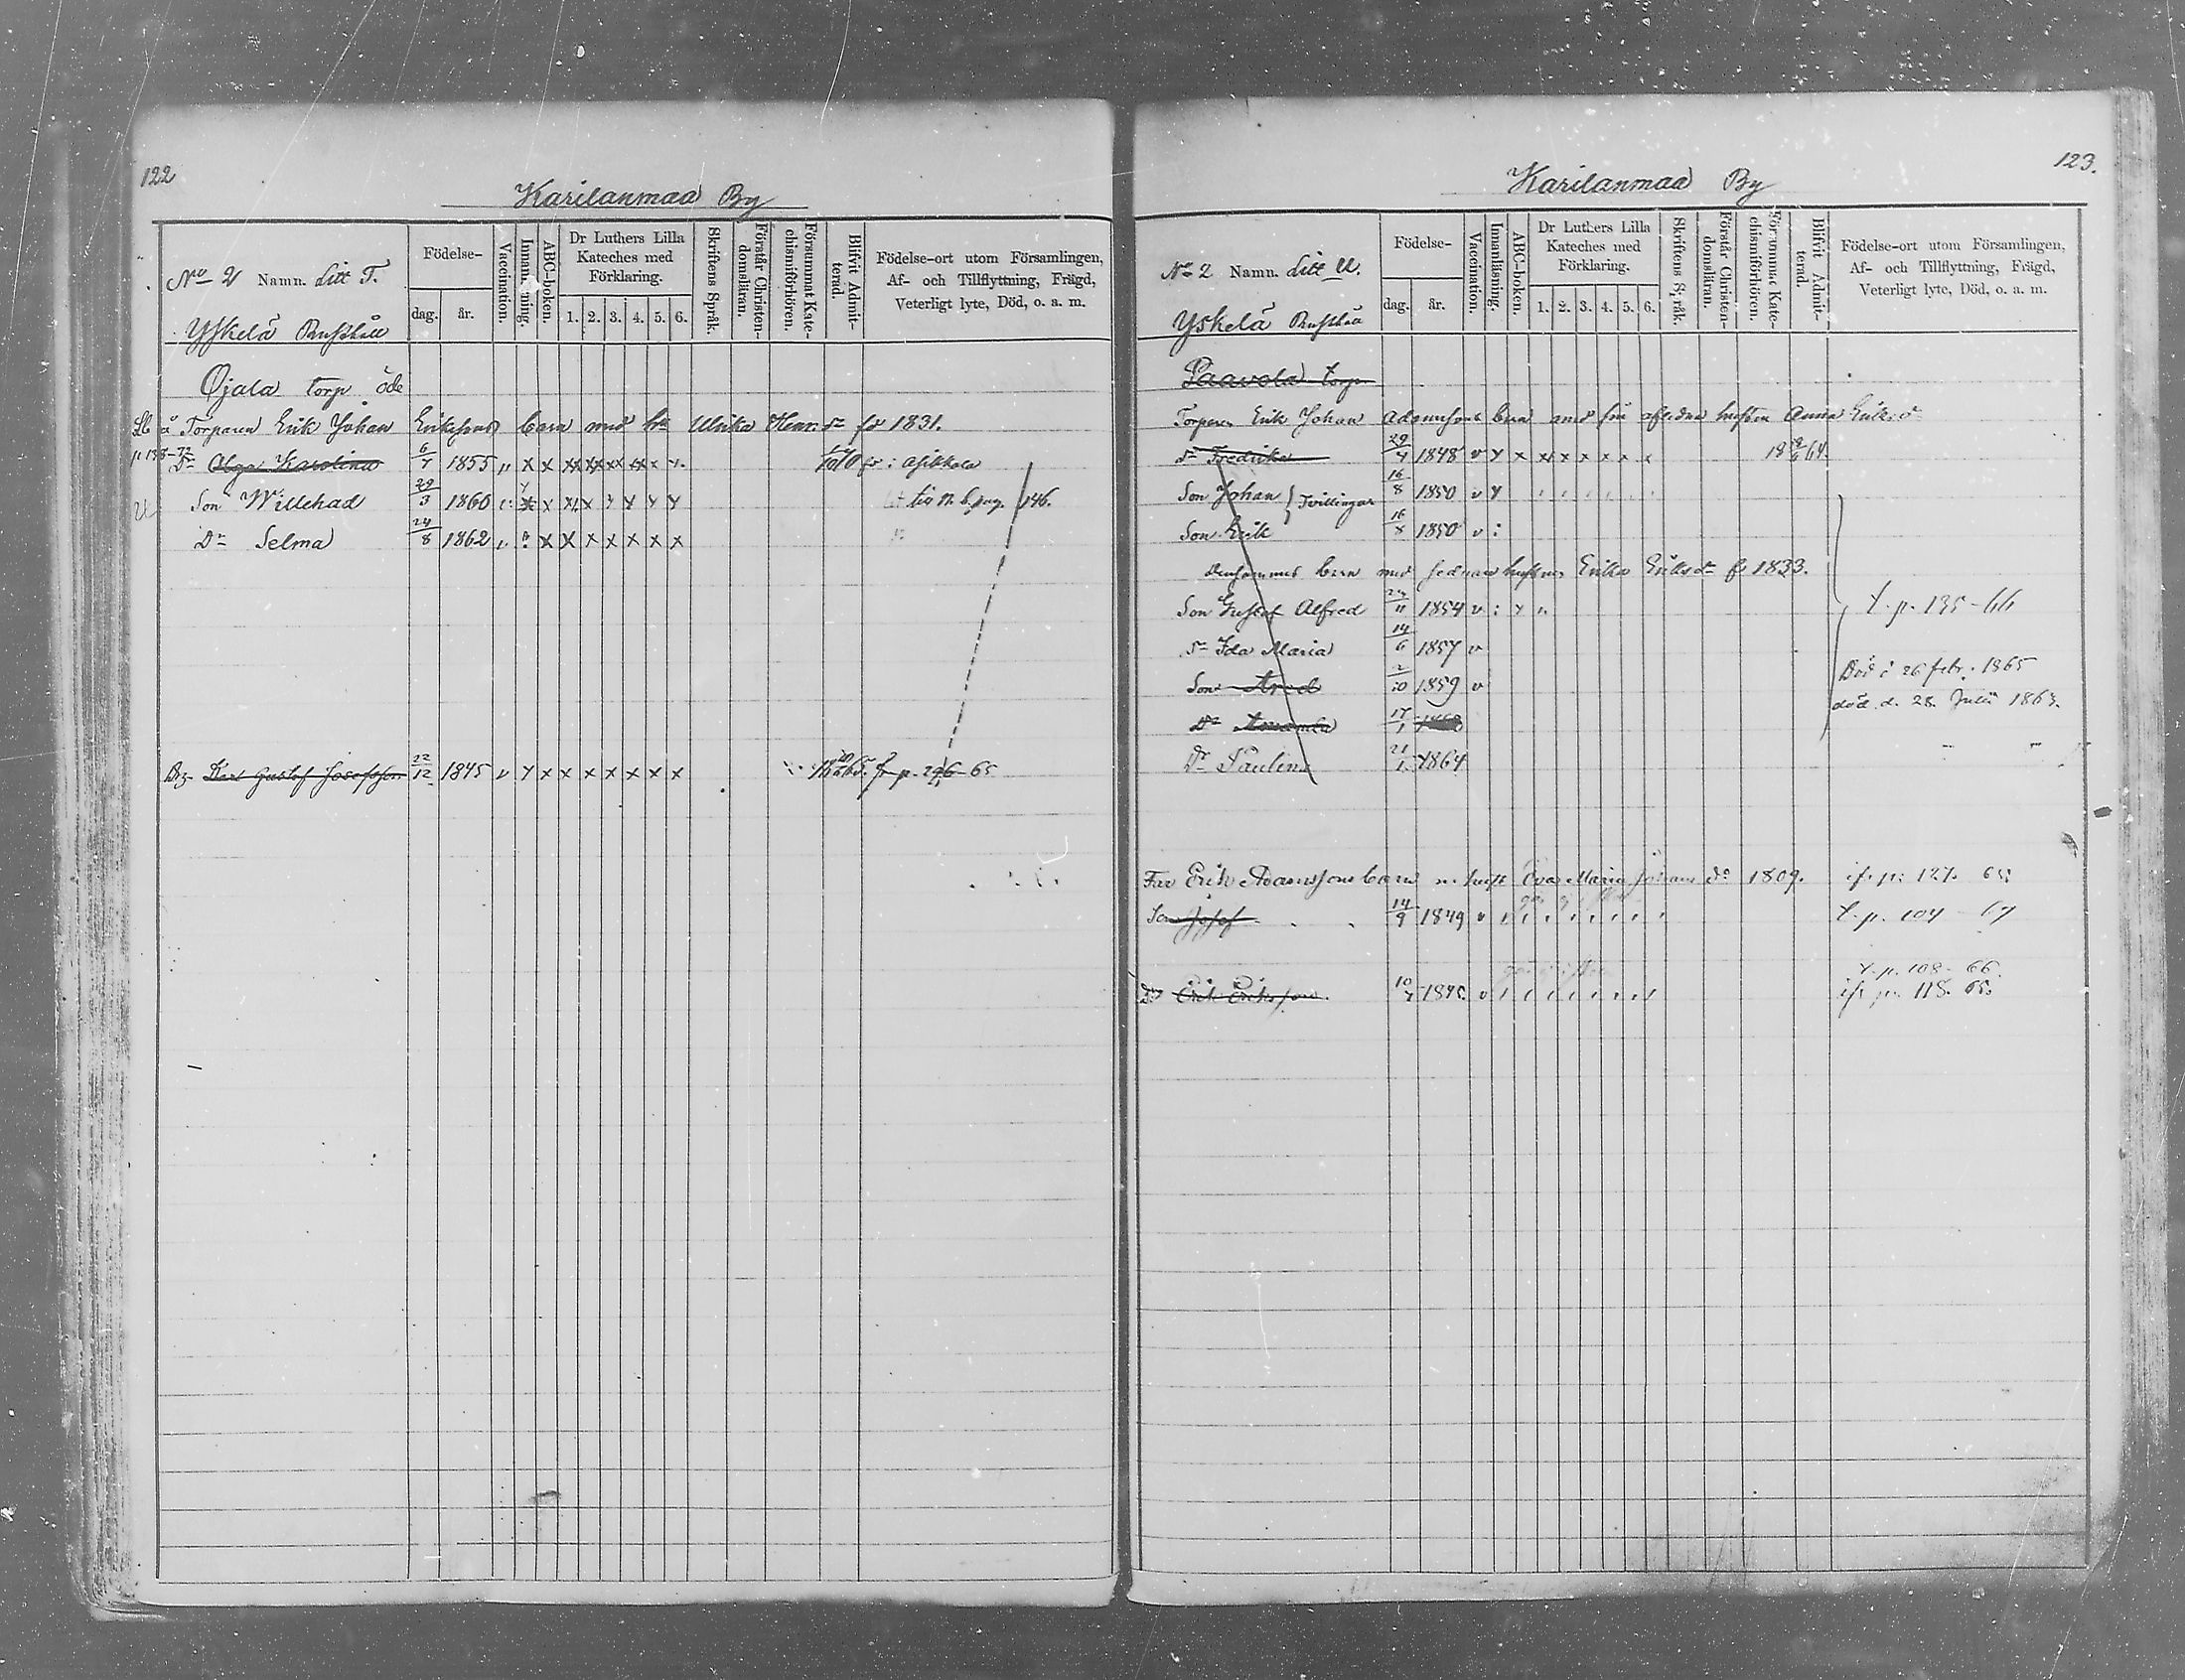 122
Karilanmaa By
No 2 Namn. Litt T.
Födelse-
dag.
år.
Vaccination.
Innanläsning.
ABC-boken.
Dr Luthers Lilla
Kateches med
Förklaring.
1. 2. 3. 4. 5. 6.
Skriftens Språk.
Förstår Christen-
domsläran.
Försummat Kate-
chismiförhören.
Blifvit Admit-
terad.
Födelse-ort utom Församlingen,
Af- och Tillflyttning, Frägd,
Veterligt lyte, Död, o. a. m.
Yskelä Rusthåll
Ojala torp öde
Torparen Erik Johan Erikssons barn med Ulrika Henr. dr fd 1831.
Dr Olga Karolina 6/7 1855 x x xx xx xx xx x x. Asikkala
Son Willehad 29/3 1860 x x x x x x x 146.
Dr Selma 24/8 1862 x x x x x x x x
Karl Gustaf Josefsson 22/12 1845 v x x x x x x x x 65. fr p. 296-65
123.
Karilanmaa By
No 2 Namn. Litt U.
Födelse-
dag.
år.
Vaccination.
Innanläsning.
ABC-boken.
Dr Luthers Lilla
Kateches med
Förklaring.
1. 2. 3. 4. 5. 6.
Skriftens Språk.
Förstår Christen-
domsläran.
Försummat Kate-
chismiförhören.
Blifvit Admit-
terad.
Födelse-ort utom Församlingen,
Af- och Tillflyttning, Frägd,
Veterligt lyte, Död, o. a. m.
Yskelä Rusthåll
Paavola torp
Torparen Erik Johan Adamssons barn med sin aflidna hustru Anna Eriks dr
dr Fredrika 29/4 1848 v x x x x x x x x 64.
Son Johan } Tvillingar 16/8 1850 v x
Son Erik 16/8 1850 v :
Densammes barn med sednare hustrun Erika Eriks dr fd 1833.
Son Gustaf Alfred 11 1854 v : x
dr Ida Maria 14/6 1857 v
t. p. 135-66
Son 2/10 1859 v Död d 26 febr. 1865
Dr Amanda 17/1 död d. 28 Julii 1863.
Dr Paulina 21/1 1864
Erik Adamssons barn m. hust Eva Maria Johans dr 1809. ifr p. 127. 65.
Son Josef 14/9 1849 v t. p. 104 - 67
t. p. 108 - 66.
Erik Eriksson 10 1845 v ifr p. 118. 65.